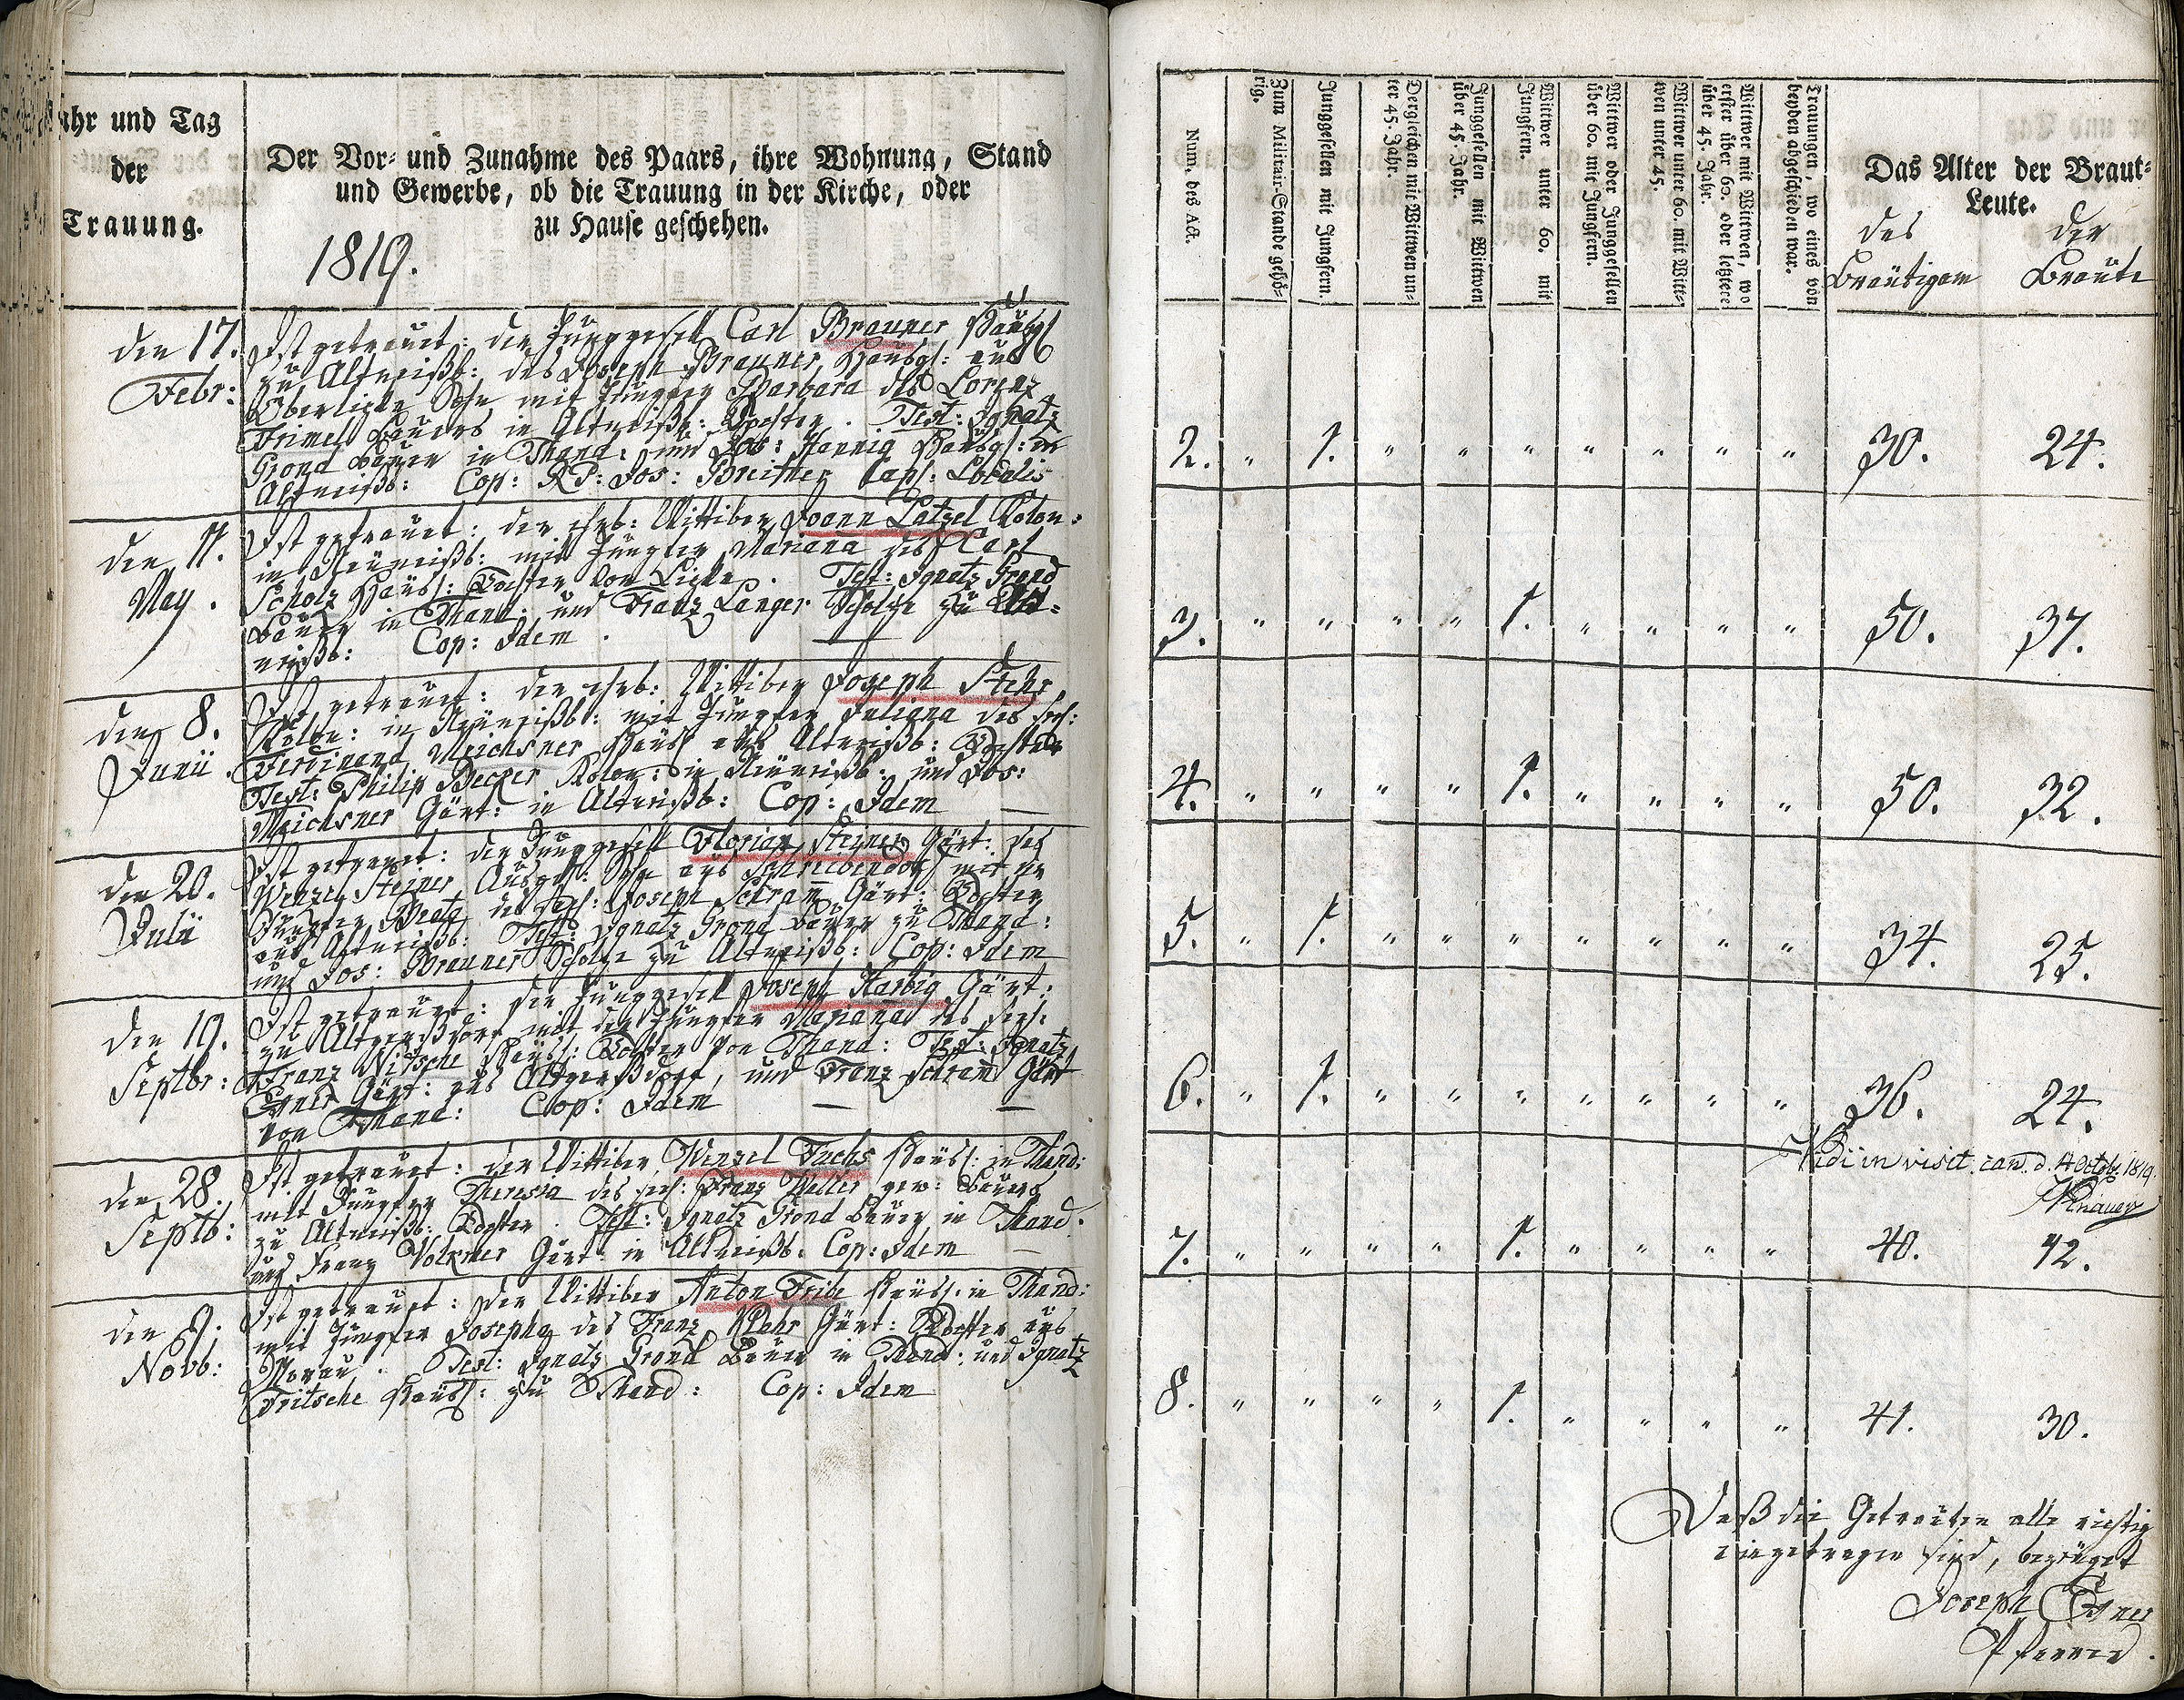 Jahr und Tag
der
Trauung.
Der Vor- und Zunahme des Paars, ihre Wohnung, Stand
und Gewerbe, ob die Trauung in der Kirche, oder
zu Hause geschehen.
1819.
den 17.
Febr:
Ist getrauet: der Junggesell Carl Brauner Häusl
zu Altneißb: des Joseph Brauner, Häusl: aus
Oberlichte Sohn mit Jungfer Barbara des Lorenz
Frimel Bauers in Altneißb: Tochter. Test: Ignatz
Grond Bauer in Thand: und Jos: Hannig Häusl: in
Altneißb: Cop: RP: Jos: Breither Capl: Localis
den 11.
May.
Ist getrauet: der ehrb: Wittiber Joann Latzel Kolon:
in Neuneißb: mit Jungfer Mariana des Carl
Scholz Häusl: Tochter von Lichte. Test: Ignatz Grond
Bauer in Thand: und Franz Langer Scholze zu Alt-
neißb: Cop: Idem.
den 8.
Junii.
Ist getrauet: der ehrb: Wittiber Joseph Stehr,
Kolon: in Neuneißb: mit Jungfer Juliana des seel:
Ferdinand Meichsner Häusl aus Altneißb: Tochter
Test: Philip Becker Kolon: in Neuneißb: und Jos:
Meichsner Gärt: in Altneißb: Cop: Idem
den 20.
Julii
Ist getrauet: der Junggesell Florian Steiner Gärt: des
Wenzel Steiner Ausged: Sohn aus mit der
Jungfer Beata des seel: Joseph Schram Gärt: Tochter
aus Altneißb: Test: Ignatz Grond Bauer zu Thand:
und Jos: Brauner Scholze zu Altneißb: Cop: Idem
den 19.
Septbr:
Ist getrauet: der Junggesell Joseph Harbig Gärt:
zu Altgerßdorf mit der Jungfer Mariana des seel:
Franz Nitsche Häusl: Tochter von Thand: Test: Ignatz
Exner Gärt: aus Altgerßdorf, und Franz Schram Gärt
von Thand: Cop: Idem
den 28.
Septb:
Ist getrauet: der Wittiber Wenzel Fuchs Häusl: in Thand:
mit Jungfer Theresia des seel: Franz Weller gew: Bauers
zu Altneißb: Tochter. Test: Ignatz Grond Bauer in Thand:
und Franz Volkmer Gärt: in Altneißb: Cop: Idem
den 9.
Novb:
Ist getrauet: der Wittiber Anton Fribe Häusl: in Thand:
mit Jungfer Josepha des Franz Klahr Gärt: Tochter aus
Morau. Test: Ignatz Grond Bauer in Thand: und Ignatz
Fritsche Häusl: zu Thand: Cop: Idem
Num. des Act.
Zum Militair-Stande gehö-
rig.
Junggesellen mit Jungfern.
Dergleichen mit Wittwen un-
ter 45. Jahr.
Junggesellen mit Wittwen
über 45. Jahr.
Wittwer unter 60. mit
Jungfern.
Wittwer oder Junggesellen
über 60. mit Jungfern.
Wittwer unter 60. mit Witt-
wen unter 45.
Wittwer mit Wittwen, wo
erster über 60. oder letztere
über 45. Jahr.
Trauungen, wo eines von
beyden abgeschieden war.
Das Alter der Braut-
Leute.
des Bräutigam
der Braute
2. " 1. " " " " " " " 30. 24.
3. " " " " 1. " " " " 50. 37.
4. " " " " 1. " " " " 50. 32.
5. " 1. " " " " " " " 34. 25.
6. " 1. " " " " " " " 36. 24.
Vidi in visit. can. d. 14 Octobr 1819.
7. " " " " 1. " " " " 40. 42.
8. " " " " 1. " " " " 41. 30.
Daß die Getrauten alle richtig
eingetragen sind, bezeuget
Joseph Exner
Pfarrer.